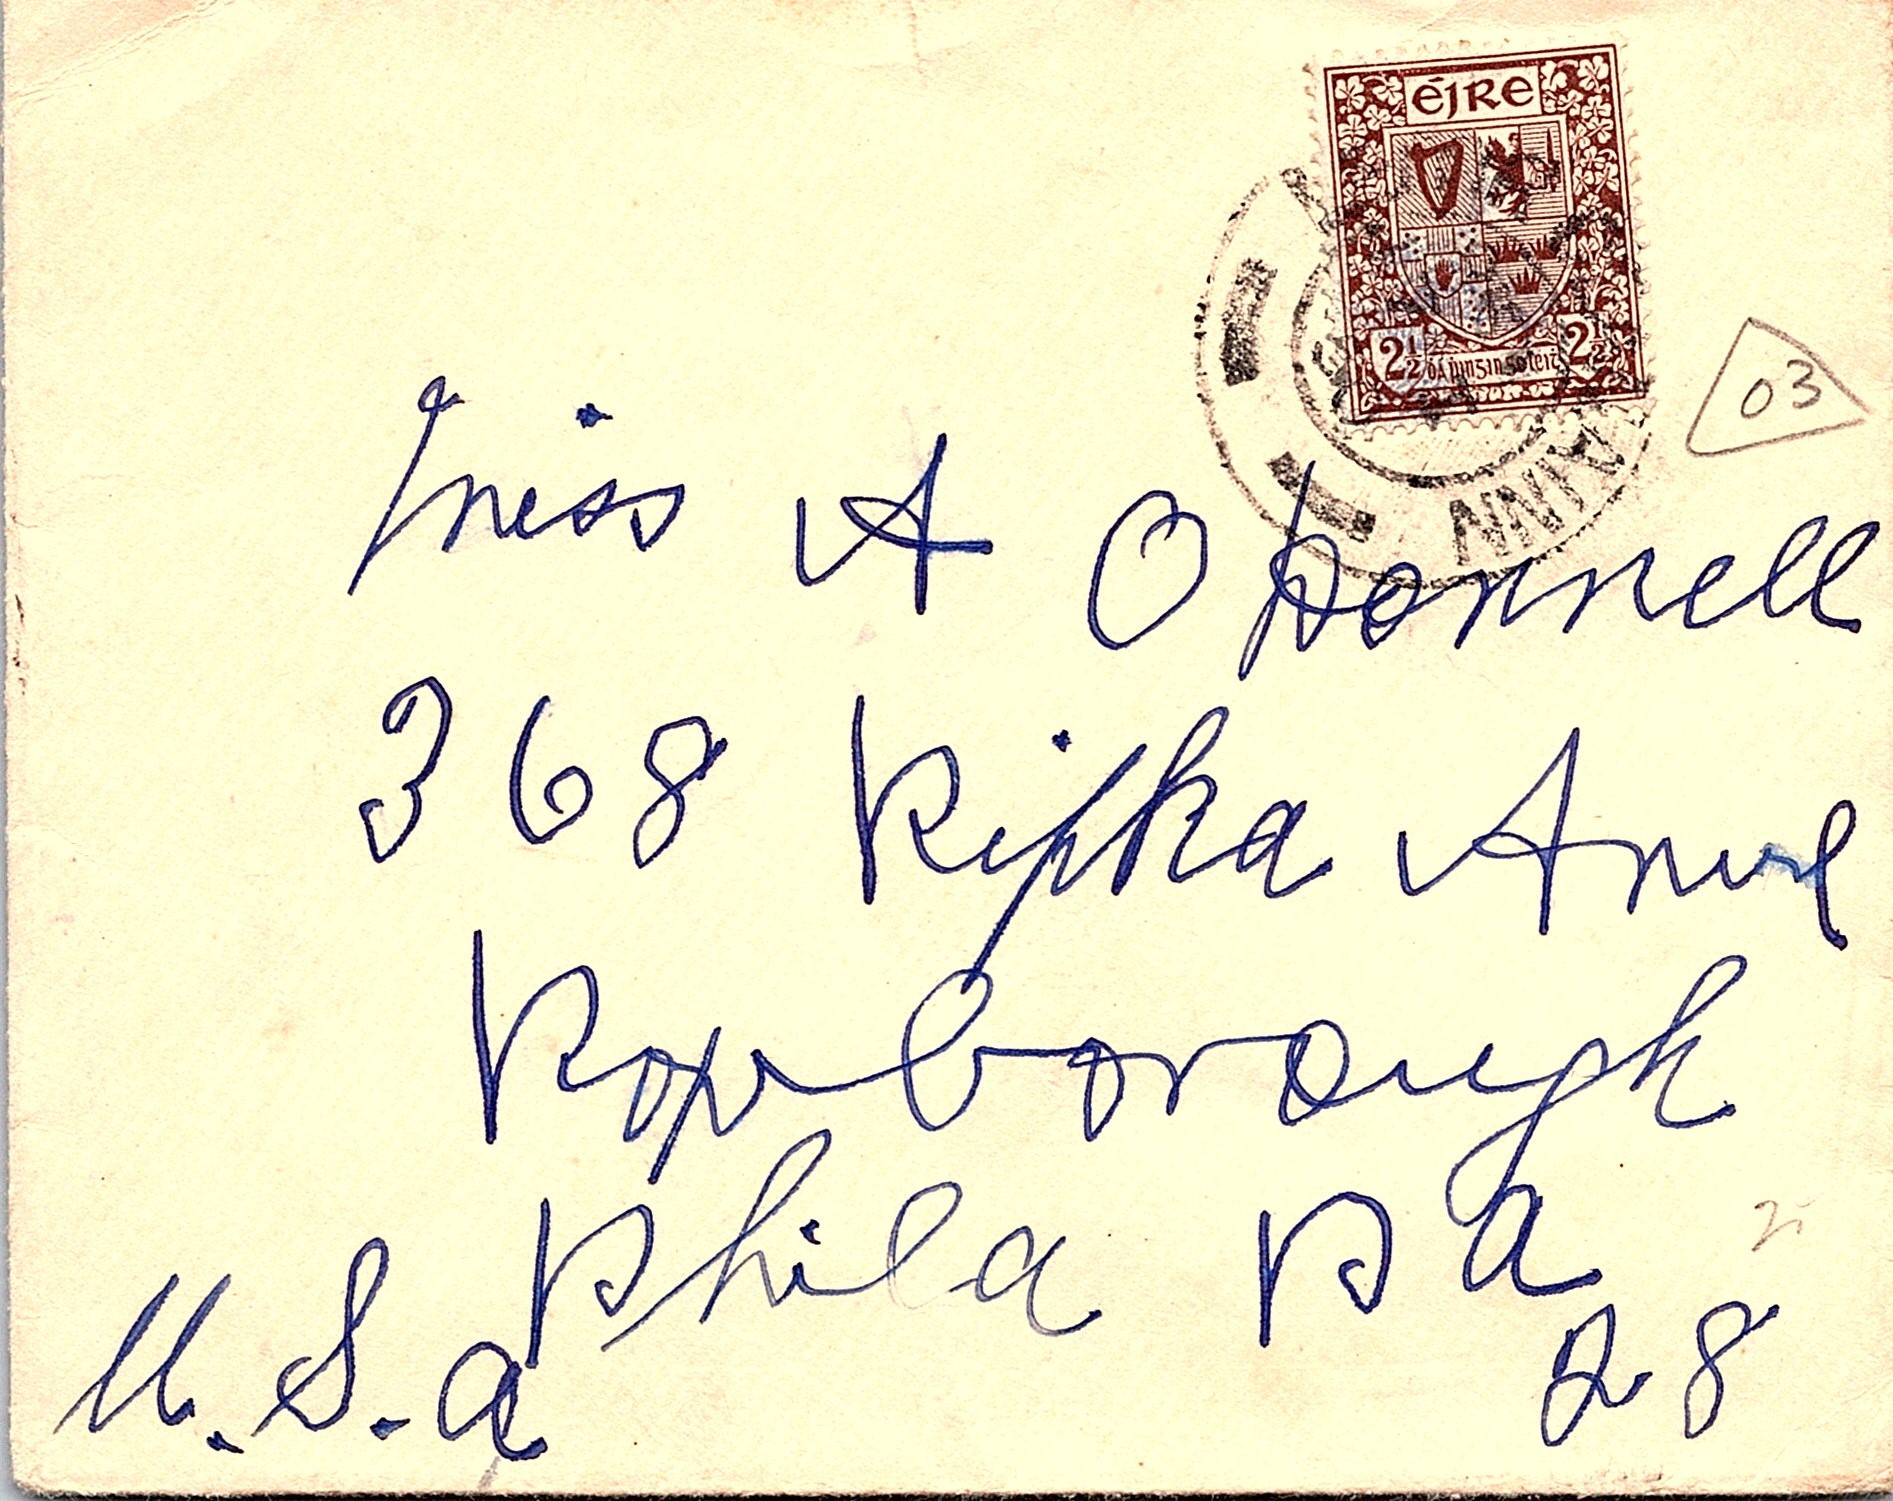 éire
2½ dá pingin go leit 2½
03
Miss A O Donnell
368 Ripka Anve
Roxborough
Phila Pa
28
U.S.a